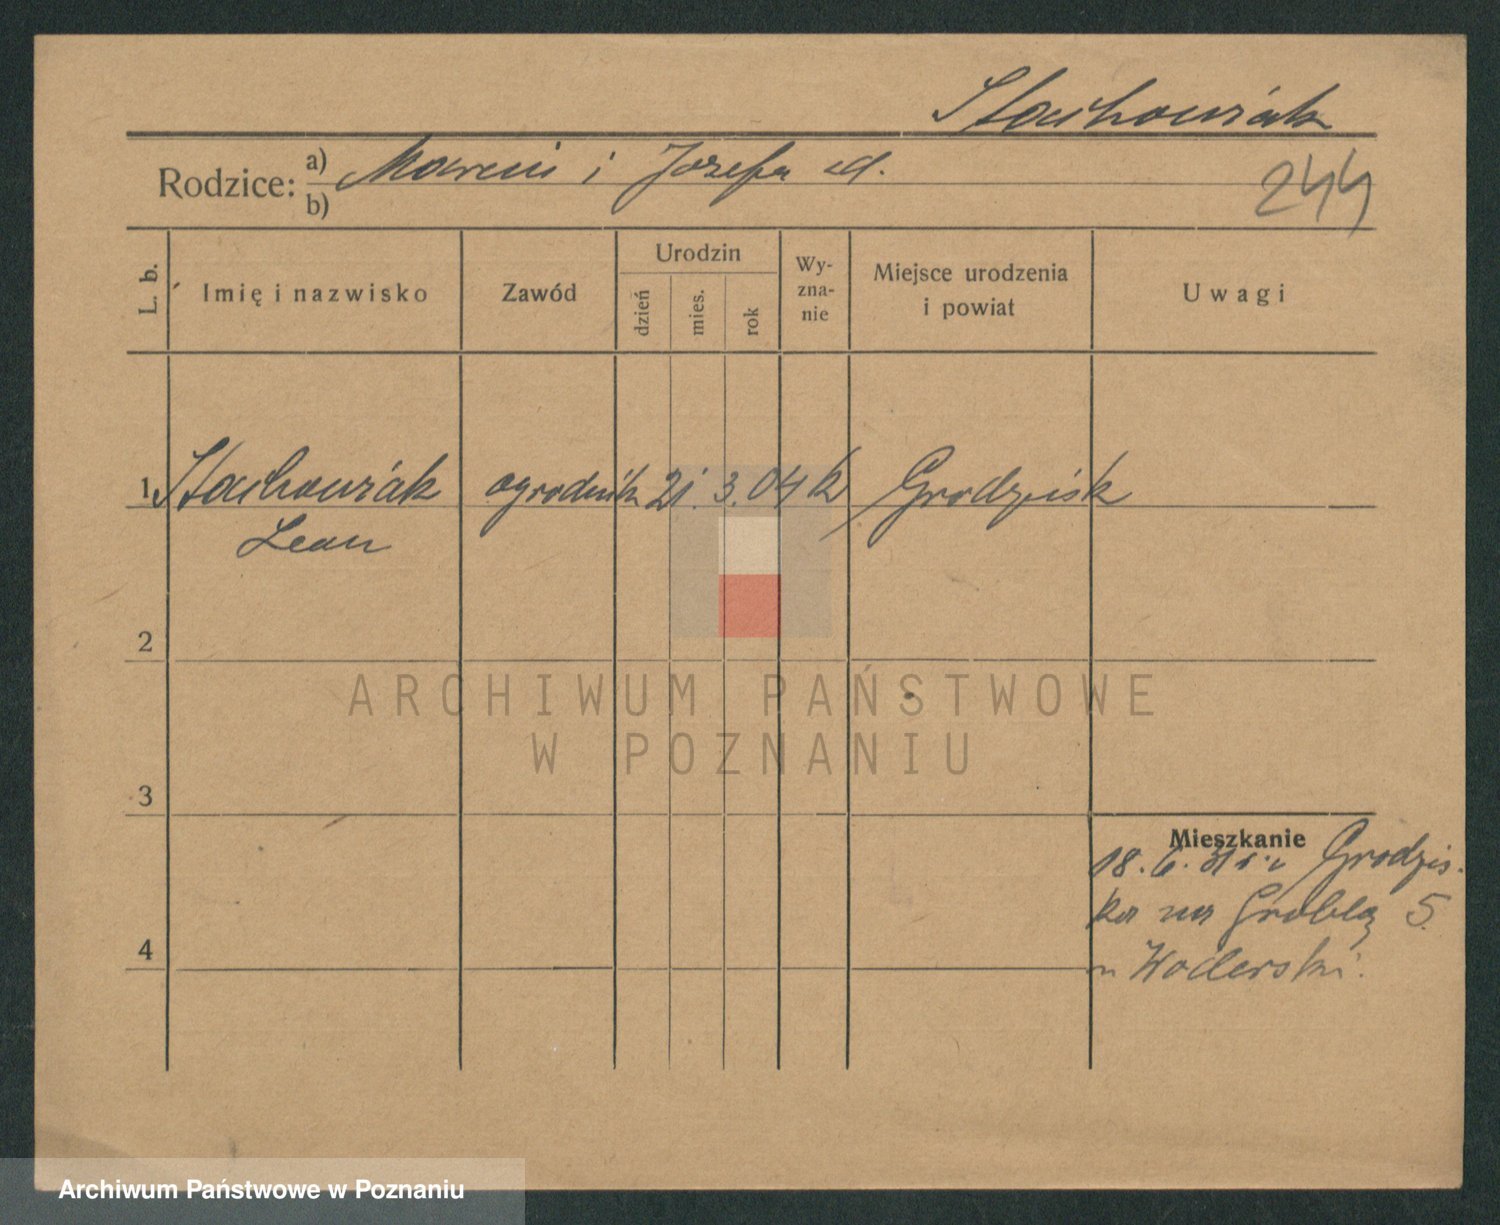 Stachowiak
Rodzice: a) Marcin i Józefa
b)
244
L. b.
Imię i nazwisko
Zawód
Urodzin
dzień
mies.
rok
Wy-
zna-
nie
Miejsce urodzenia
i powiat
Uwagi
1 Stachowiak ogrodnik 21. 3. 04 k Grodzisk
Leon
2
3
4
Mieszkanie
18. 6. 31 z Grodzis-
ka na Groblą 5.
Woderski.
ARCHIWUM PAŃSTWOWE
W POZNANIU
Archiwum Państwowe w Poznaniu